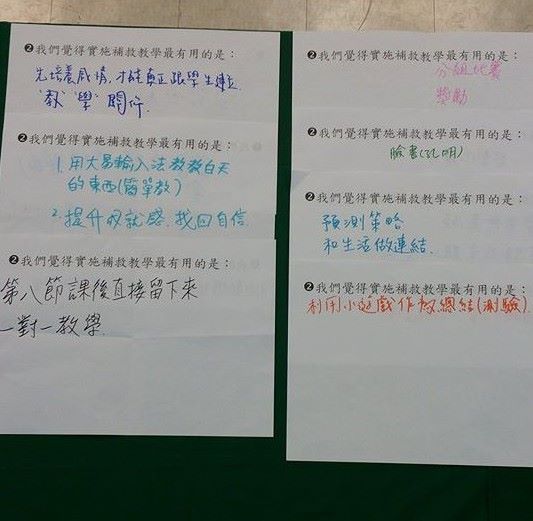 ❷我們覺得實施補救教學最有用的是：
先培養感情，才能真正跟學生建立
"教""學"關係.
❷我們覺得實施補救教學最有用的是：
1. 用大易輸入法教教白天
的東西(簡單教)
2. 提升成就感.找回自信.
❷我們覺得實施補救教學最有用的是：
第八節課後直接留下來
一對一教學.
❷我們覺得實施補救教學最有用的是：
分組比賽
獎勵
❷我們覺得實施補救教學最有用的是：
臉書(孔明)
❷我們覺得實施補救教學最有用的是：
預測策略
和生活做連結.
❷我們覺得實施補救教學最有用的是：
利用小遊戲作為總結(測驗).